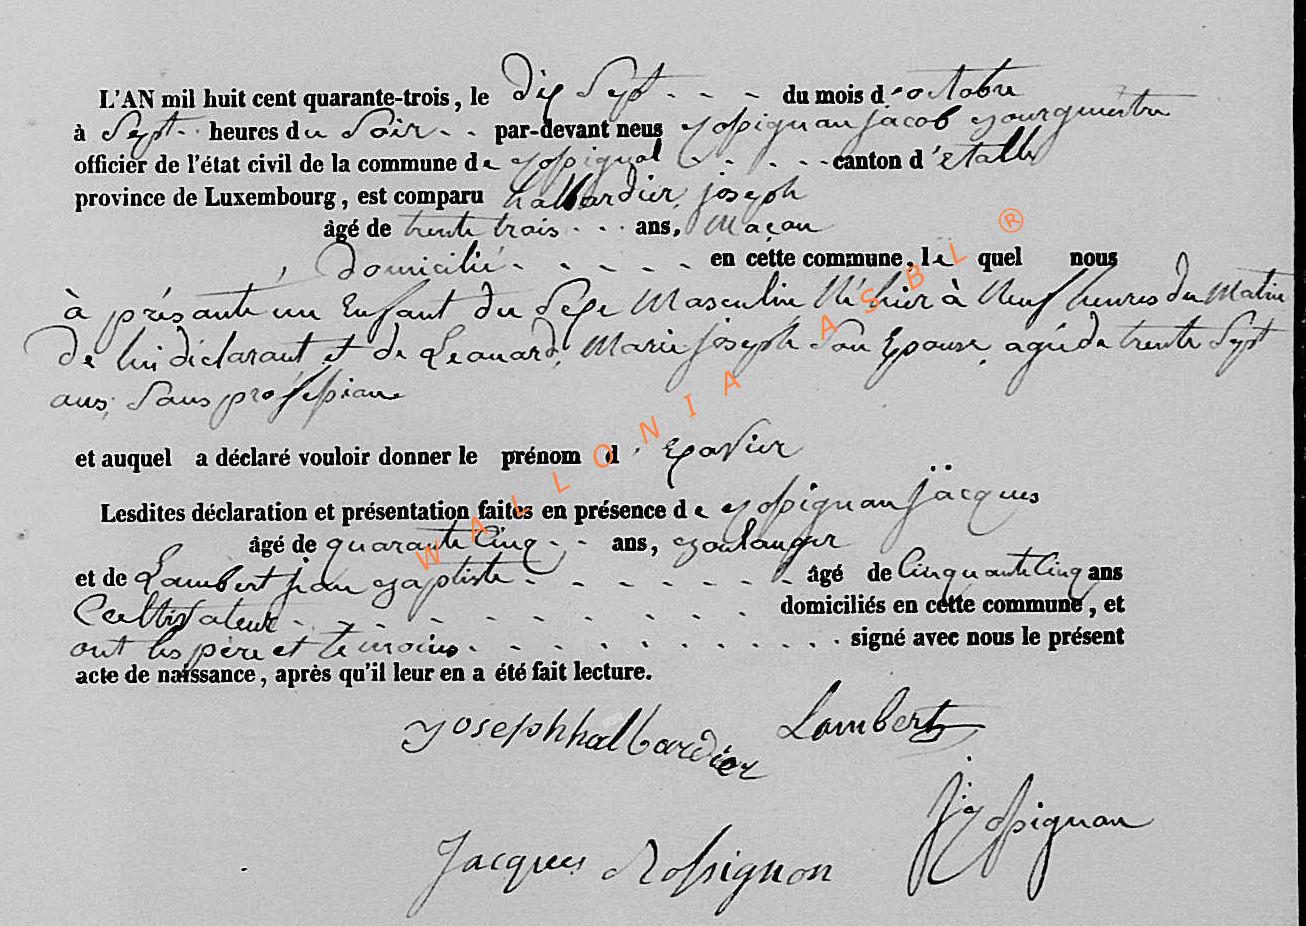 L'AN mil huit cent quarante-trois, le dix Sept - - - du mois d'octobre
à Sept heures du Soir - - par-devant nous Rossignon jacob Bourgmestre
officier de l'état civil de la commune de Rossignol - - - - - canton d'Etalle
province de Luxembourg, est comparu halbardier, joseph
âgé de trente trois - - - ans, Maçon
, domicilié - - - - - en cette commune, le quel nous
à présanté un Enfant du Sexe Masculin Né hier à Neuf heures du Matin
de lui déclarant et de Leonard, Marie joseph Son Epouse, agée de trente Sept
ans, Sans profession
et auquel a déclaré vouloir donner le prénom d'Exavier
Lesdites déclaration et présentation faites en présence de Rossignon jacques
âgé de quarante Cinq - - ans, Boulanger
et de Lambert jean Baptiste - - - - - - - âgé de Cinquante Cinq ans
Cultivateur - - - - - - - - - domiciliés en cette commune, et
ont les père et temoins - - - - - - - - - - - signé avec nous le présent
acte de naissance, après qu'il leur en a été fait lecture.
Joseph halbardier Lambert
J. Rossignon
Jacques Rossignon
WALLONIA ASBL ®